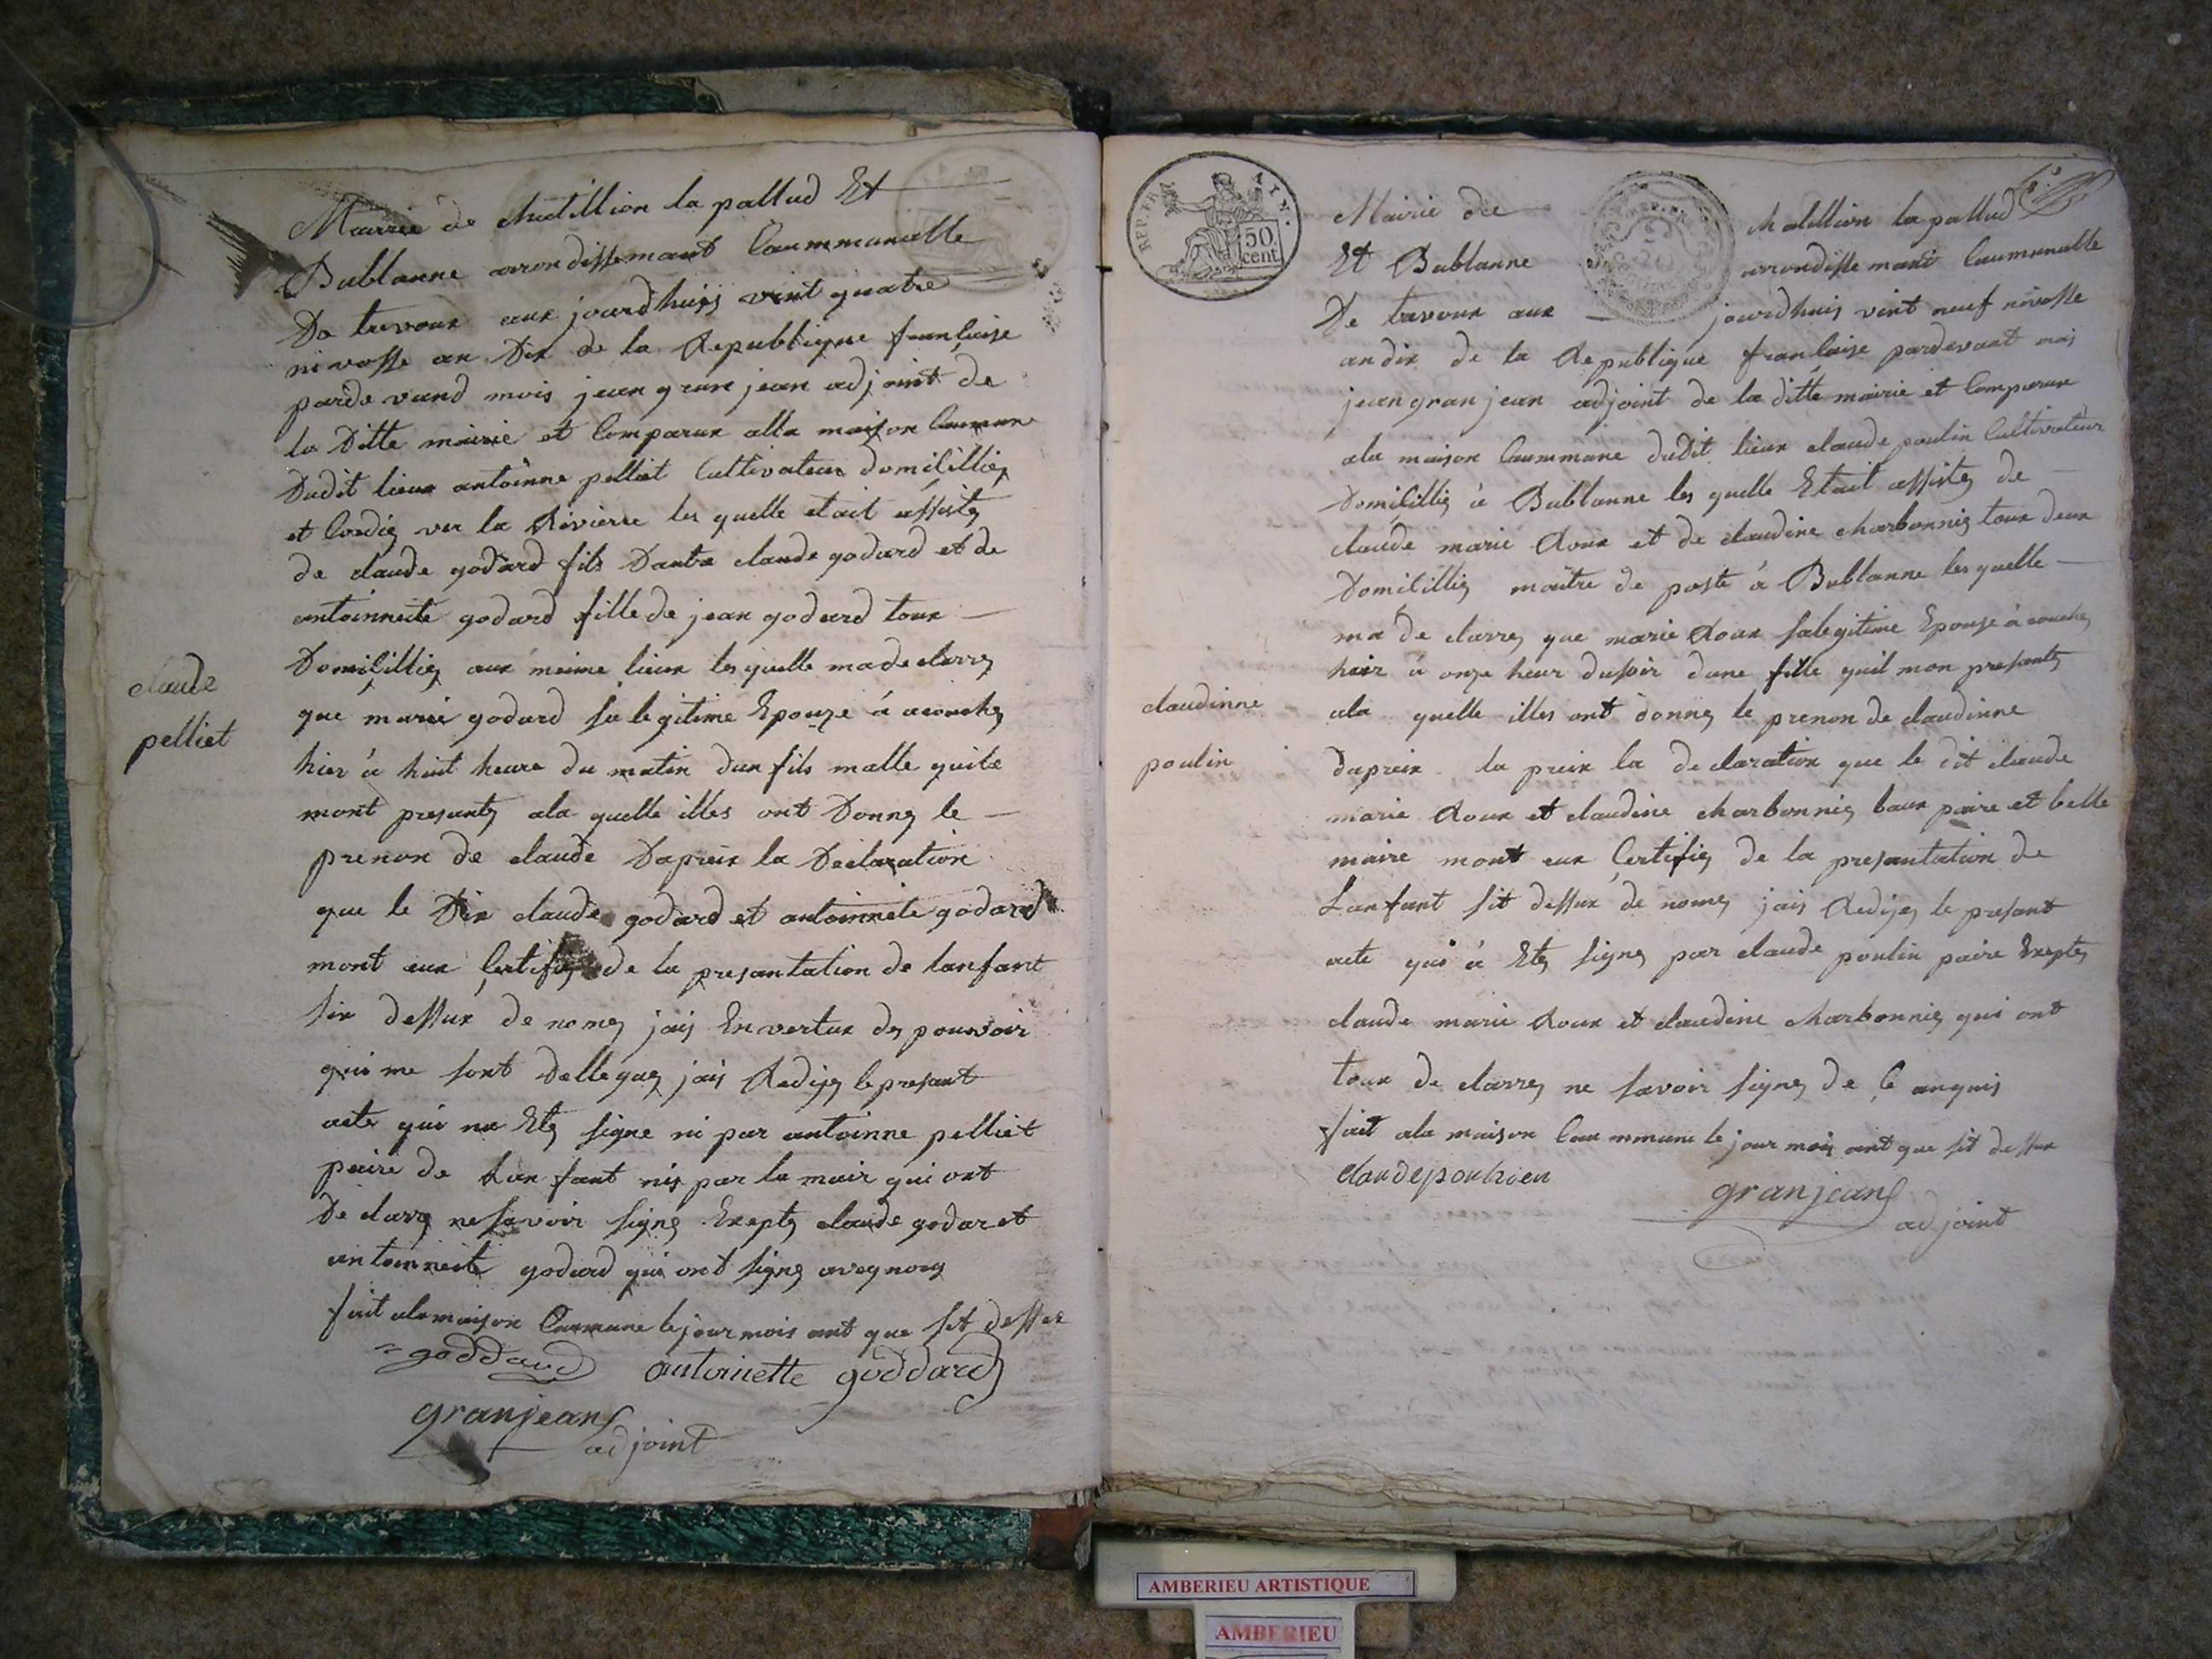 Mairie de chatillion la pallud Et
Bublanne arrondissemant Caummunalle
De trevoux aux jourdhuis vint quatre
nivosse an Dix de la Republique francaise
parde vand mois jean gran jean adjoint de
la Ditte mairie et Comparux alla maison Commune
Dudit lieux antoinne pelliet Cultivateur domicillies
et Cordiez ver la Riviere les quelle etait assistez
de claude godard fils Dautre claude godard et de
antoinnette godard fille de jean godard toux
Domicilliez aux meime lieux les quelle ma de clarrez
que marie godard sa legitime Epouze à acouchez
hier à huit heure du matin dun fils malle quile
mont presantez ala quelle illes ont Donnez le
prenon de claude Dapreix la Declaration
que le Dix claude godard et antoinnete godard
mont aux Certifiez de la presantation de lanfant
six dessux de nomez jais En vertux des pouvoir
qui me sont Delleguez jais Redigez le presant
acte qui na Etez signe ni par antoinne pelliet
paire de Lanfant nis par la mair qui ont
De clarrez ne savoir signez Exeptez claude godar et
antoinnete godard qui ont signez aveq nous
fait ala maison Commune le jour mois ant que sit dessux
goddard antoinette goddard
granjean
adjoint
claude
pelliet
REP. FRA.
50
cent
Mairie de chatillion la pallud
Et Bublanne arrondissemant Caummunalle
De trevoux aux jourdhuis vint neuf nivosse
an dix de la Republique francaise pardevant mois
jean gran jean adjoint de la ditte mairie et Comparux
ala maison Caummune dudit lieux claude poulin Cultivateur
Domicilliez à Bublanne les quelle Etait assistez de
claude marie Roux et de claudine charbonniez toux deux
Domicilliez maitre de poste à Bublanne les quelle
ma de clarrez que marie Roux sa legitime Epouse à acouchez
hier à onze heur dusoir dune fille quil mon presantez
ala quelle illes ont donnez le prenon de claudinne
dapreix la preix la declaration que le dit claude
marie Roux et claudine charbonniez baux paire et belle
maire mont aux Certifiez de la presantation de
Lanfant sit dessux de nomez jais Redigez le presant
acte qui à Etez signez par claude poulin paire Exeptez
claude marie Roux et claudine charbonniez qui ont
toux de clarrez ne savoir signez de Ce anquis
fait ala maison Caummune le jour mois ant que sit dessux
granjean
adjoint
claudinne
poulin
AMBERIEU ARTISTIQUE
AMBERIEU